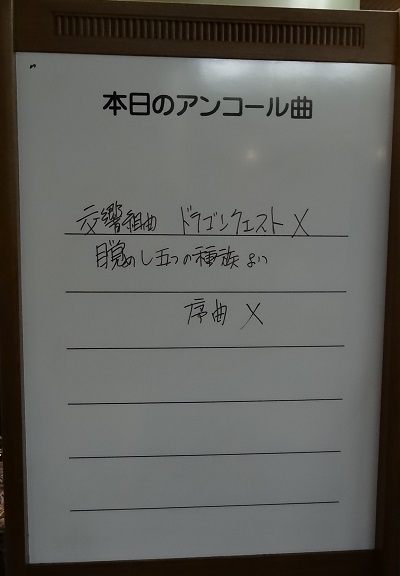 本日のアンコール曲
交響組曲 ドラゴンクエスト X
目覚めし五つの種族 より
序曲 X